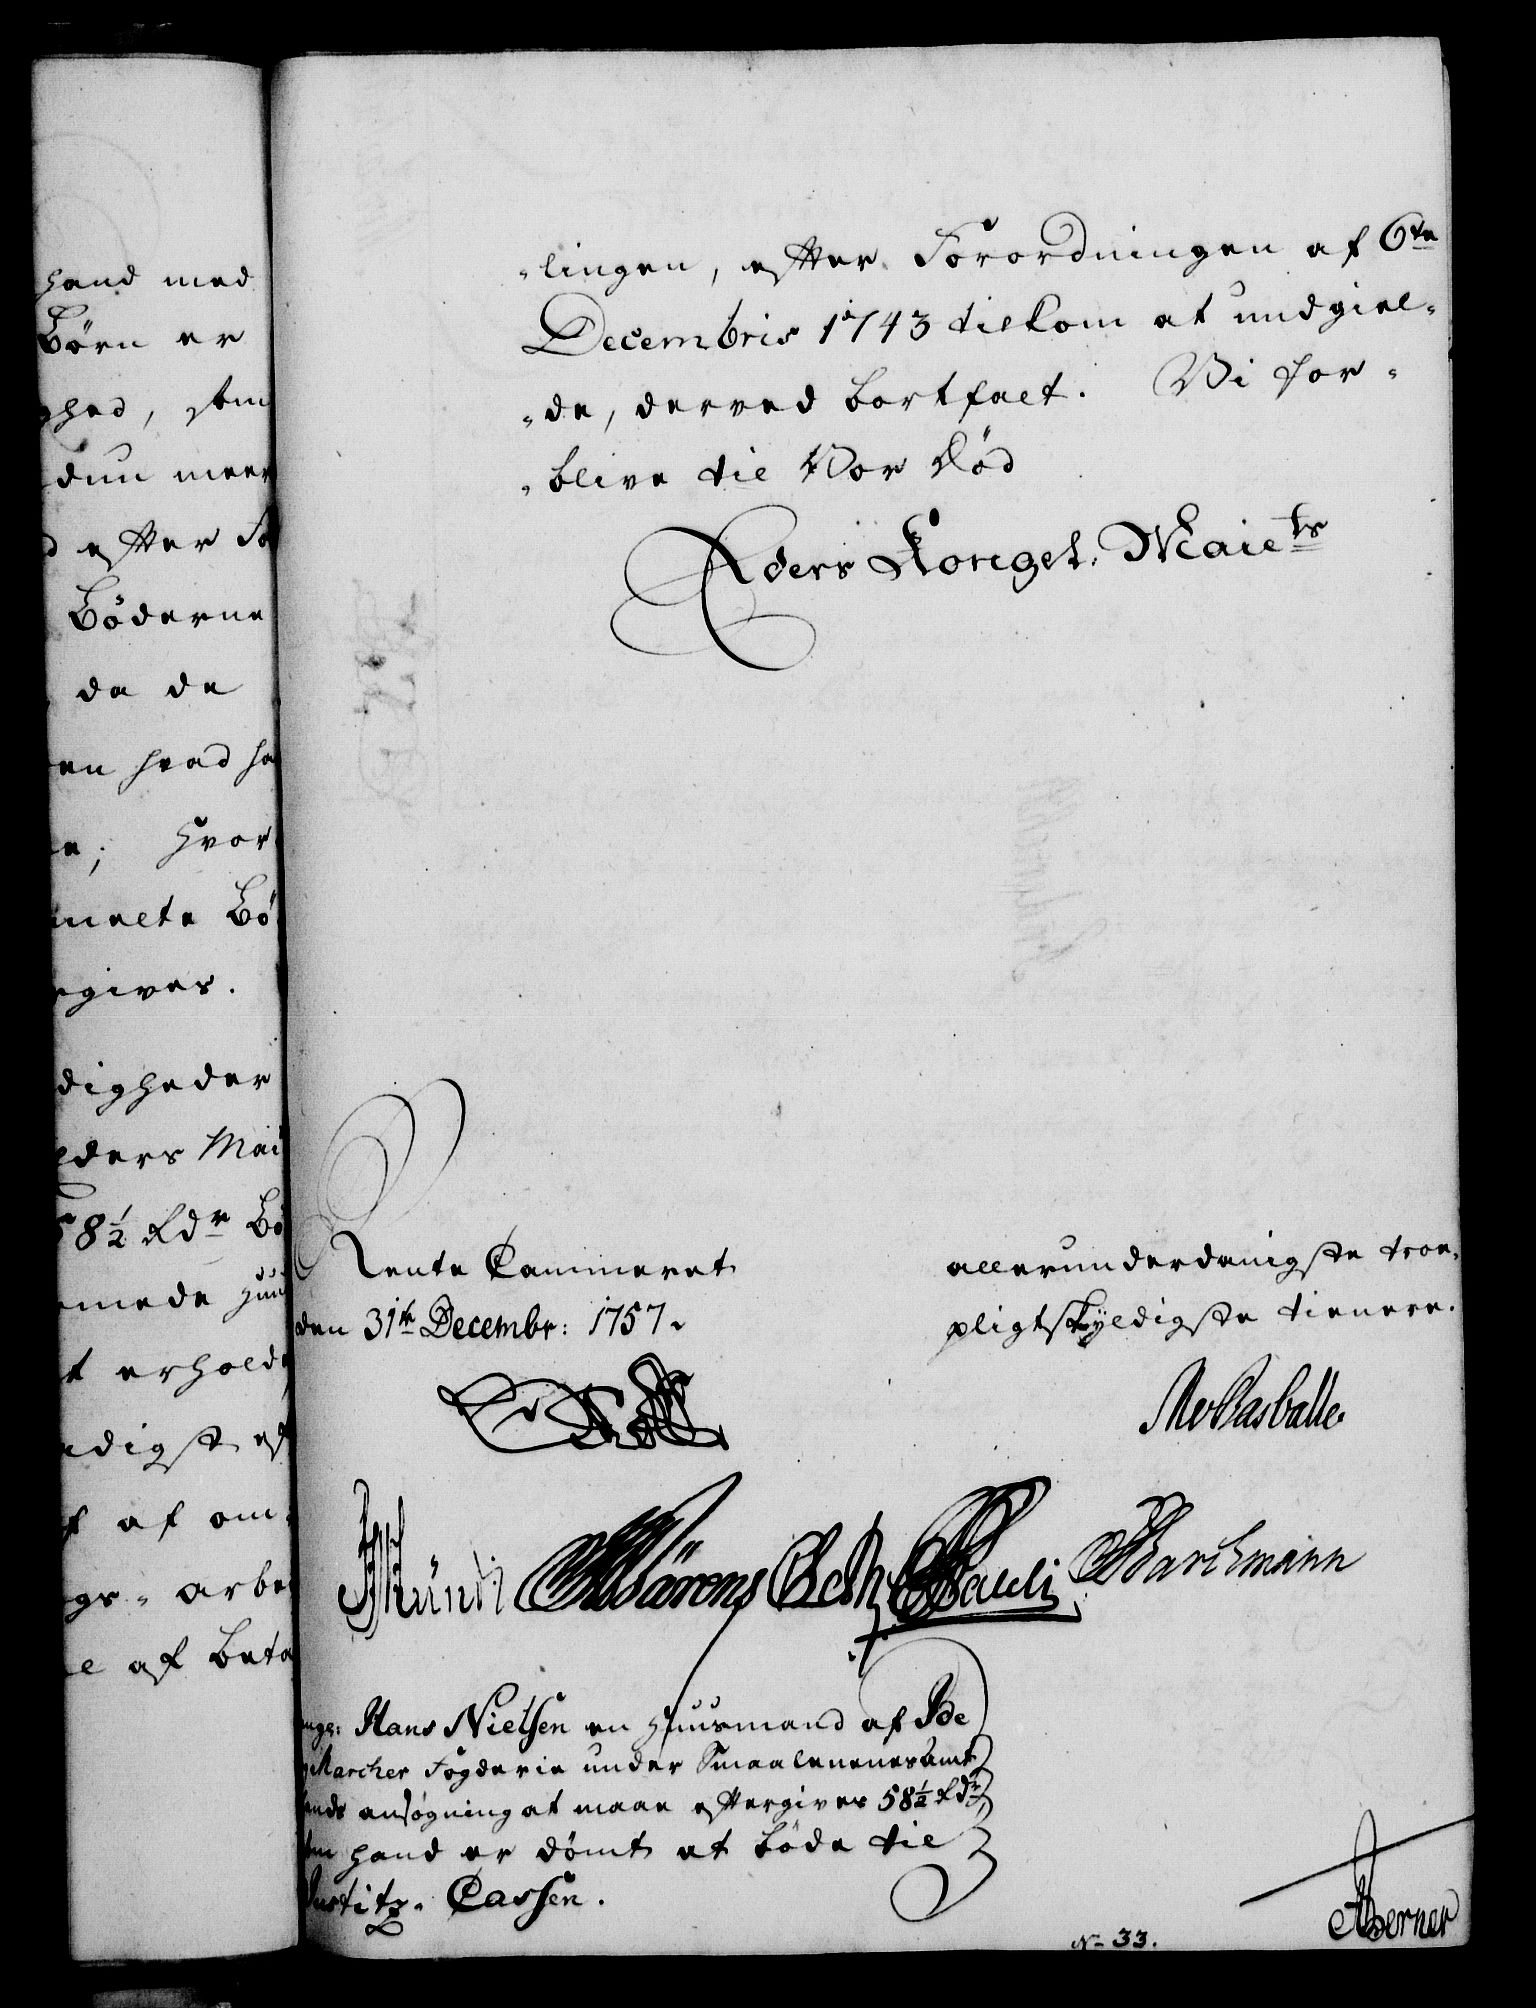 hand med
Börn er
ghed, som
dun meer
efter
Böderne
da de
en hvad
e; hvor
melte Bö
rgives.
digheder
ders Mai
58½ Rdr Bö
mede
t erholde
adigst ef
af om
gs- arbe
e af beta
-lingen, efter Forordningen af 6te
Decembris 1743 tilkom at undgiel-
-de, derved bortfalt. Vi for-
-blive til Vor Död
Eders Kongel. Maiets
Rente Cammeret
den 31te Decembr: 1757.
allerunderdanigste troe-
pligtskyldigste tienere.
Rasballe
Pauli
Barchmann
ange: Hans Nielsen en Huusmand af Ide
Marcher Fogderie under Smaalenenes Amt
ends ansögning at maae eftergives 58½ Rdr
som hand er dömt at böde til
Justitz- Cassen.
JBerner
No 33.